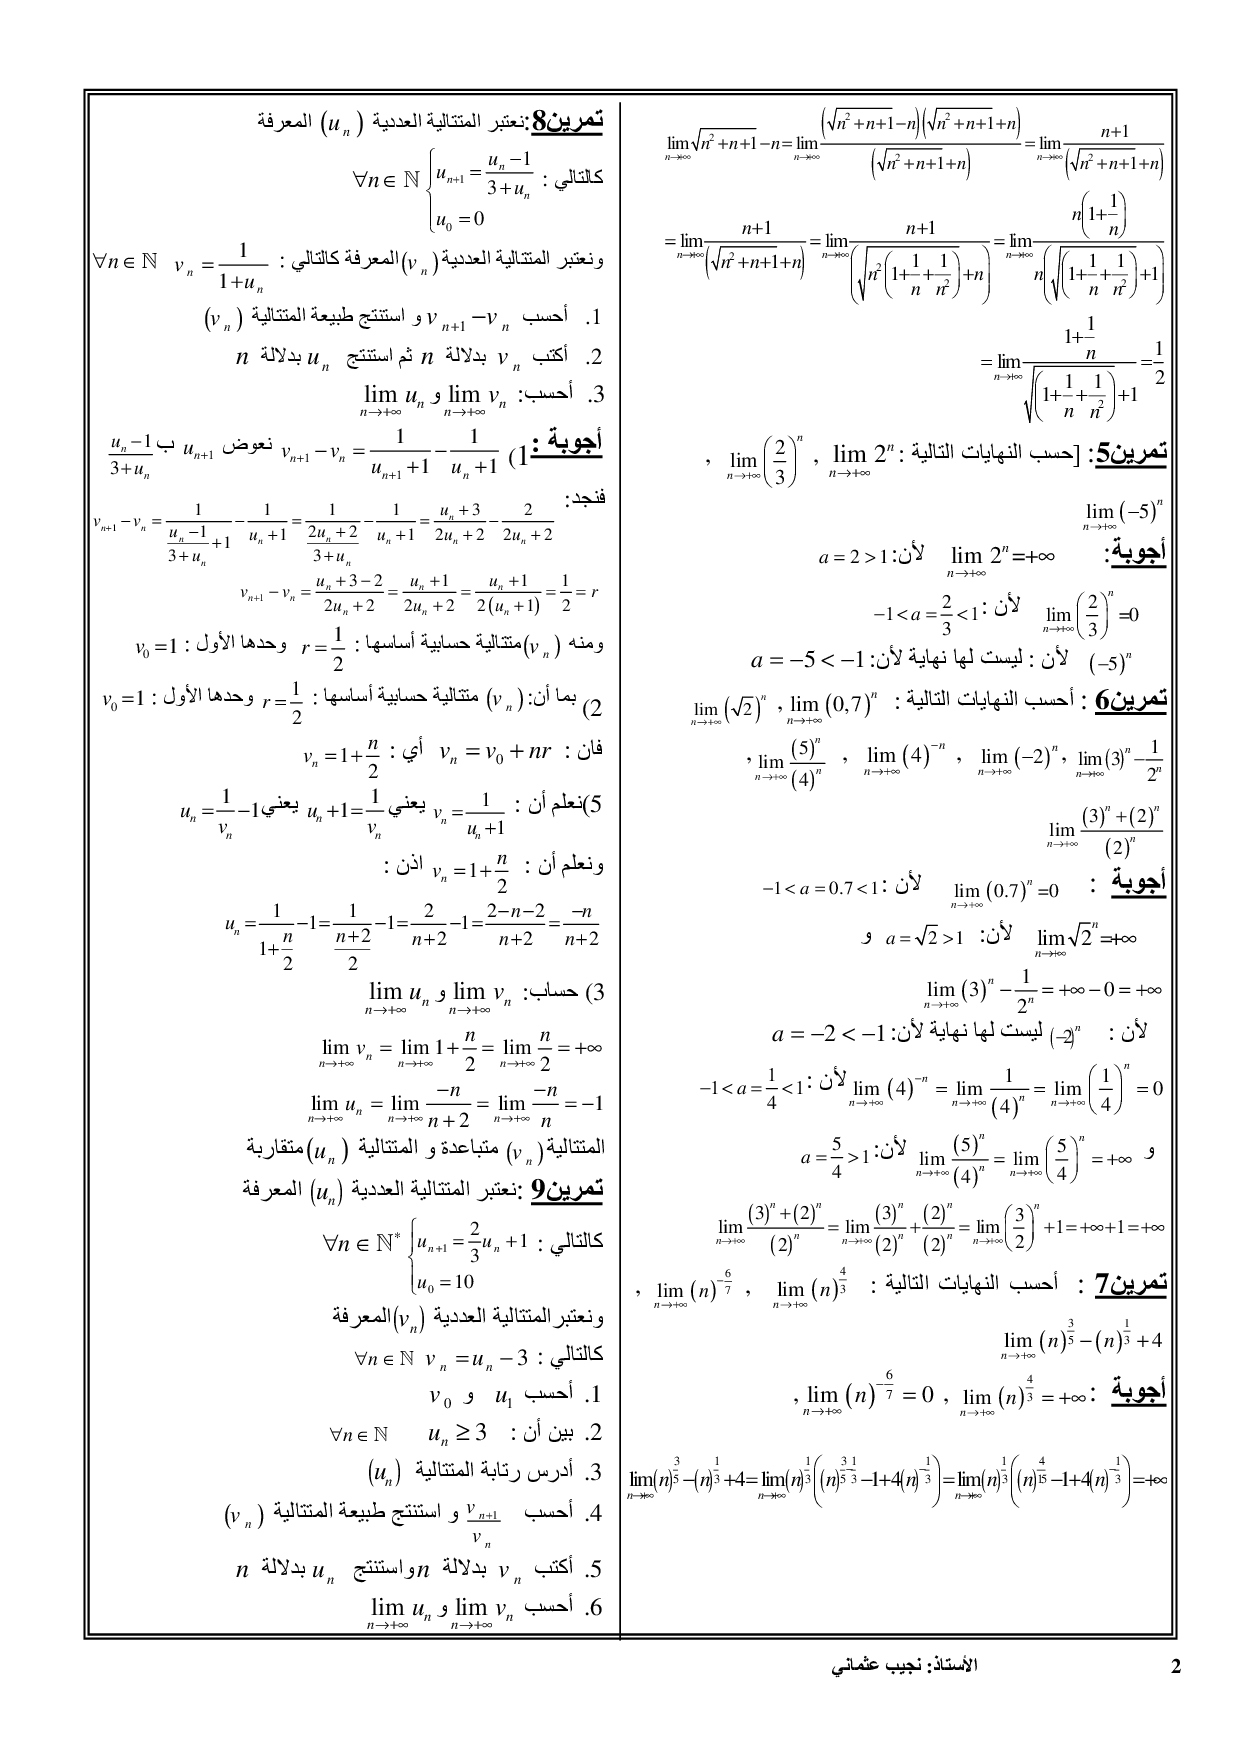 lim_{n→+∞} √(n²+n+1) − n = lim_{n→+∞} (√(n²+n+1)−n)(√(n²+n+1)+n) / (√(n²+n+1)+n) = lim_{n→+∞} (n+1)/(√(n²+n+1)+n)
= lim_{n→+∞} (n+1)/(√(n²+n+1)+n) = lim_{n→+∞} (n+1)/(√(n²(1+1/n+1/n²))+n) = lim_{n→+∞} n(1+1/n) / n(√(1+1/n+1/n²)+1)
= lim_{n→+∞} (1+1/n)/(√(1+1/n+1/n²)+1) = 1/2
تمرين5: [حسب النهايات التالية : lim_{n→+∞} 2ⁿ , lim_{n→+∞} (2/3)ⁿ ,
lim_{n→+∞} (−5)ⁿ
أجوبة: lim_{n→+∞} 2ⁿ=+∞ لأن: a = 2 > 1
lim_{n→+∞} (2/3)ⁿ =0 لأن : −1 < a = 2/3 < 1
(−5)ⁿ لأن : ليست لها نهاية لأن: a = −5 < −1
تمرين6 : أحسب النهايات التالية : lim_{n→+∞} (0,7)ⁿ , lim_{n→+∞} (√2)ⁿ
lim_{n→+∞} (3)ⁿ − 1/2ⁿ , lim_{n→+∞} (−2)ⁿ , lim_{n→+∞} (4)⁻ⁿ , lim_{n→+∞} (5)ⁿ/(4)ⁿ ,
lim_{n→+∞} ((3)ⁿ + (2)ⁿ)/(2)ⁿ
أجوبة : lim_{n→+∞} (0.7)ⁿ =0 لأن : −1 < a = 0.7 < 1
lim_{n→+∞} √2ⁿ=+∞ لأن: a = √2 > 1 و
lim_{n→+∞} (3)ⁿ − 1/2ⁿ = +∞ − 0 = +∞
لأن : (−2)ⁿ ليست لها نهاية لأن: a = −2 < −1
lim_{n→+∞} (4)⁻ⁿ = lim_{n→+∞} 1/(4)ⁿ = lim_{n→+∞} (1/4)ⁿ = 0 لأن : −1 < a = 1/4 < 1
و lim_{n→+∞} (5)ⁿ/(4)ⁿ = lim_{n→+∞} (5/4)ⁿ = +∞ لأن: a = 5/4 > 1
lim_{n→+∞} ((3)ⁿ + (2)ⁿ)/(2)ⁿ = lim_{n→+∞} (3)ⁿ/(2)ⁿ + (2)ⁿ/(2)ⁿ = lim_{n→+∞} (3/2)ⁿ + 1 = +∞ + 1 = +∞
تمرين7 : أحسب النهايات التالية : lim_{n→+∞} (n)^{4/3} , lim_{n→+∞} (n)^{−6/7} ,
lim_{n→+∞} (n)^{3/5} − (n)^{1/3} + 4
أجوبة : lim_{n→+∞} (n)^{4/3} = +∞ , lim_{n→+∞} (n)^{−6/7} = 0 ,
lim_{n→+∞} (n)^{3/5} − (n)^{1/3} + 4 = lim_{n→+∞} (n)^{1/3} ((n)^{3/5−1/3} − 1 + 4(n)^{−1/3}) = lim_{n→+∞} (n)^{1/3} ((n)^{4/15} − 1 + 4(n)^{−1/3}) = +∞
تمرين8: نعتبر المتتالية العددية (u_n) المعرفة
كالتالي : { u_{n+1} = (u_n − 1)/(3 + u_n) ; u_0 = 0 ∀n ∈ ℕ
ونعتبر المتتالية العددية (v_n) المعرفة كالتالي : v_n = 1/(1 + u_n) ∀n ∈ ℕ
1. أحسب v_{n+1} − v_n و استنتج طبيعة المتتالية (v_n)
2. أكتب v_n بدلالة n ثم استنتج u_n بدلالة n
3. أحسب: lim_{n→+∞} v_n و lim_{n→+∞} u_n
أجوبة : 1) v_{n+1} − v_n = 1/(u_{n+1} + 1) − 1/(u_n + 1) نعوض u_{n+1} ب (u_n − 1)/(3 + u_n)
فنجد:
v_{n+1} − v_n = 1/((u_n − 1)/(3 + u_n) + 1) − 1/(u_n + 1) = 1/((2u_n + 2)/(3 + u_n)) − 1/(u_n + 1) = (u_n + 3)/(2u_n + 2) − 2/(2u_n + 2)
v_{n+1} − v_n = (u_n + 3 − 2)/(2u_n + 2) = (u_n + 1)/(2u_n + 2) = (u_n + 1)/(2(u_n + 1)) = 1/2 = r
ومنه (v_n) متتالية حسابية أساسها : r = 1/2 وحدها الأول : v_0 = 1
2) بما أن: (v_n) متتالية حسابية أساسها : r = 1/2 وحدها الأول : v_0 = 1
فان : v_n = v_0 + nr أي : v_n = 1 + n/2
5)نعلم أن : v_n = 1/(u_n + 1) يعني u_n + 1 = 1/v_n يعني u_n = 1/v_n − 1
ونعلم أن : v_n = 1 + n/2 اذن :
u_n = 1/(1 + n/2) − 1 = 1/((n + 2)/2) − 1 = 2/(n + 2) − 1 = (2 − n − 2)/(n + 2) = −n/(n + 2)
3) حساب: lim_{n→+∞} v_n و lim_{n→+∞} u_n
lim_{n→+∞} v_n = lim_{n→+∞} 1 + n/2 = lim_{n→+∞} n/2 = +∞
lim_{n→+∞} u_n = lim_{n→+∞} −n/(n + 2) = lim_{n→+∞} −n/n = −1
المتتالية (v_n) متباعدة و المتتالية (u_n) متقاربة
تمرين9 :نعتبر المتتالية العددية (u_n) المعرفة
كالتالي : { u_{n+1} = 2/3 u_n + 1 ; u_0 = 10 ∀n ∈ ℕ*
ونعتبرالمتتالية العددية (v_n) المعرفة
كالتالي : v_n = u_n − 3 ∀n ∈ ℕ
1. أحسب u_1 و v_0
2. بين أن : u_n ≥ 3 ∀n ∈ ℕ
3. أدرس رتابة المتتالية (u_n)
4. أحسب v_{n+1}/v_n و استنتج طبيعة المتتالية (v_n)
5. أكتب v_n بدلالة n واستنتج u_n بدلالة n
6. أحسب lim_{n→+∞} v_n و lim_{n→+∞} u_n
الأستاذ: نجيب عثماني
2